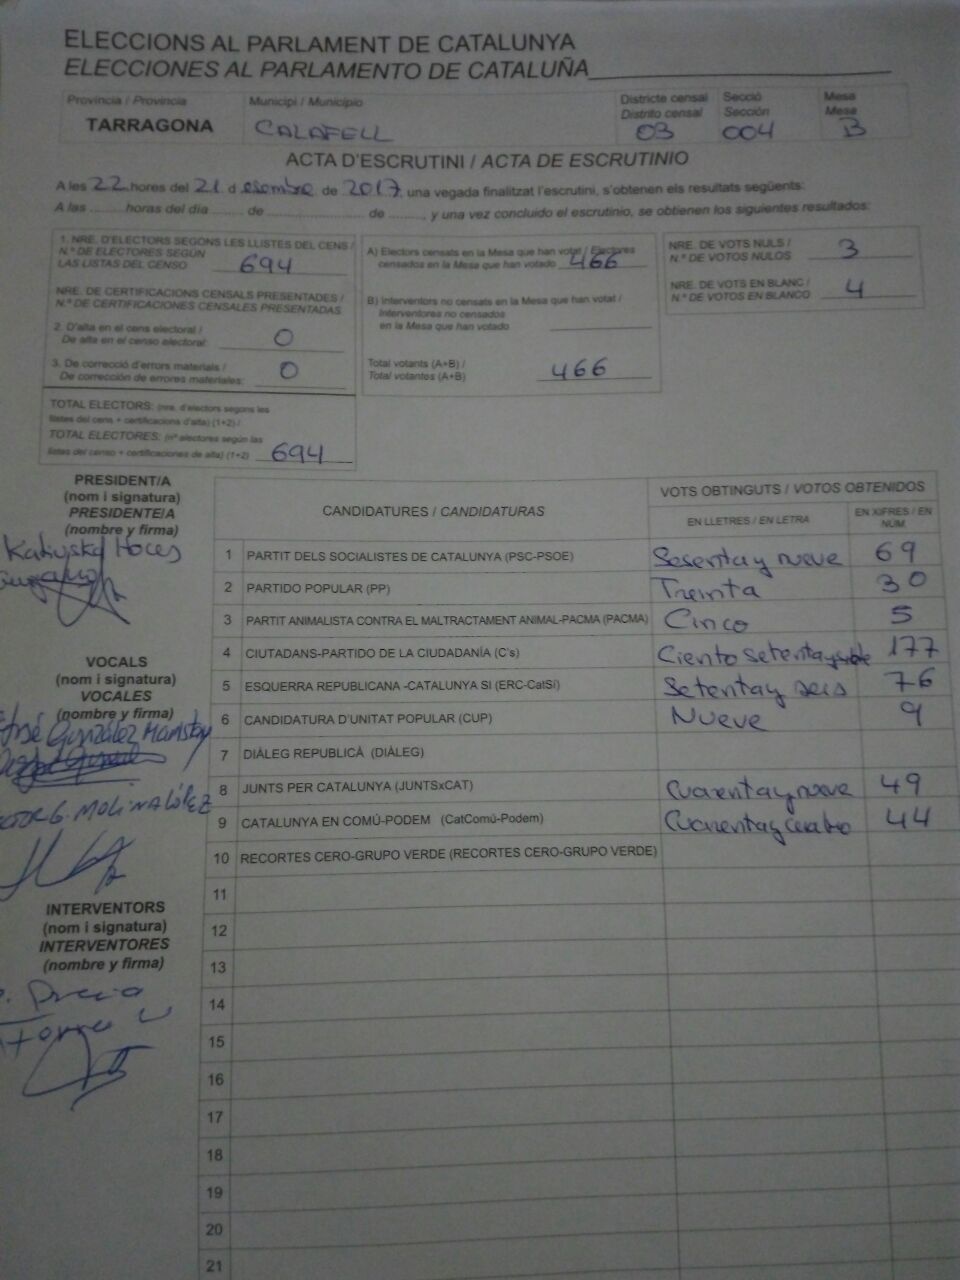 ELECCIONS AL PARLAMENT DE CATALUNYA
ELECCIONES AL PARLAMENTO DE CATALUÑA
Província / Provincia
TARRAGONA
Municipi / Municipio
CALAFELL
Districte censal
Distrito censal
03
Secció
Sección
004
Mesa
Mesa
B
ACTA D'ESCRUTINI / ACTA DE ESCRUTINIO
A les 22 hores del 21 d esembre de 2017, una vegada finalitzat l'escrutini, s'obtenen els resultats següents:
A las ......... horas del día ......... de ......................... de ........., y una vez concluido el escrutinio, se obtienen los siguientes resultados:
1. NRE. D'ELECTORS SEGONS LES LLISTES DEL CENS /
N.º DE ELECTORES SEGÚN
LAS LISTAS DEL CENSO 694
NRE. DE CERTIFICACIONS CENSALS PRESENTADES /
N.º DE CERTIFICACIONES CENSALES PRESENTADAS
2. D'alta en el cens electoral /
De alta en el censo electoral: 0
3. De correcció d'errors materials /
De corrección de errores materiales: 0
TOTAL ELECTORS: (nre. d'electors segons les
llistes del cens + certificacions d'alta) (1+2) /
TOTAL ELECTORES: (nº electores según las
listas del censo + certificaciones de alta) (1+2) 694
A) Electors censats en la Mesa que han votat / Electores
censados en la Mesa que han votado 466
B) Interventors no censats en la Mesa que han votat /
Interventores no censados
en la Mesa que han votado
Total votants (A+B) /
Total votantes (A+B) 466
NRE. DE VOTS NULS /
N.º DE VOTOS NULOS 3
NRE. DE VOTS EN BLANC /
N.º DE VOTOS EN BLANCO 4
PRESIDENT/A
(nom i signatura)
PRESIDENTE/A
(nombre y firma)
Hoces
VOCALS
(nom i signatura)
VOCALES
(nombre y firma)
José González
G. MOLINA LÓPEZ
INTERVENTORS
(nom i signatura)
INTERVENTORES
(nombre y firma)
CANDIDATURES / CANDIDATURAS
VOTS OBTINGUTS / VOTOS OBTENIDOS
EN LLETRES / EN LETRA
EN XIFRES / EN NÚM.
1 PARTIT DELS SOCIALISTES DE CATALUNYA (PSC-PSOE) Sesenta y nueve 69
2 PARTIDO POPULAR (PP) Treinta 30
3 PARTIT ANIMALISTA CONTRA EL MALTRACTAMENT ANIMAL-PACMA (PACMA) Cinco 5
4 CIUTADANS-PARTIDO DE LA CIUDADANÍA (C's) Ciento setenta y siete 177
5 ESQUERRA REPUBLICANA -CATALUNYA SÍ (ERC-CatSí) Setenta y seis 76
6 CANDIDATURA D'UNITAT POPULAR (CUP) Nueve 9
7 DIÀLEG REPUBLICÀ (DIÀLEG)
8 JUNTS PER CATALUNYA (JUNTSxCAT) Cuarenta y nueve 49
9 CATALUNYA EN COMÚ-PODEM (CatComú-Podem) Cuarenta y cuatro 44
10 RECORTES CERO-GRUPO VERDE (RECORTES CERO-GRUPO VERDE)
11
12
13
14
15
16
17
18
19
20
21